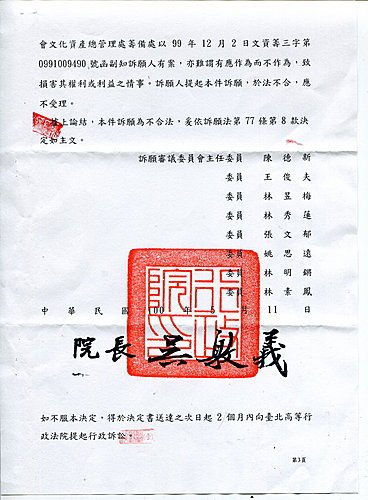 會文化資產總管理處籌備處以 99 年 12 月 2 日文資籌三字第
0991009490 號函副知訴願人有案，亦難謂有應作為而不作為，致
損害其權利或利益之情事。訴願人提起本件訴願，於法不合，應
不受理。
據上論結，本件訴願為不合法，爰依訴願法第 77 條第 8 款決
定如主文。
訴願審議委員會主任委員 陳德新
委員 王俊夫
委員 林昱梅
委員 林秀蓮
委員 張文郁
委員 姚思遠
委員 林明鏘
委員 林素鳳
中華民國 100 年 5 月 11 日
院長 吳敦義
如不服本決定，得於決定書送達之次日起 2 個月內向臺北高等行
政法院提起行政訴訟。
第3頁